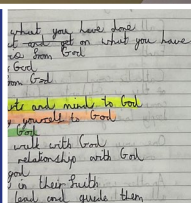 what you have done
and get on what you have
from God
God
from God
and mind to God
yourself to God
God
walk with God
relationship with God
god
in their faith
lead and guide them